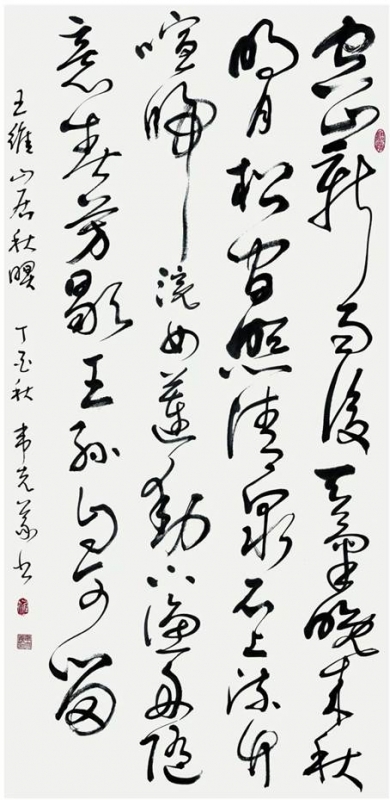 空山新雨後天氣晚來秋
明月松間照清泉石上流竹
喧歸浣女蓮動下漁舟隨
意春芳歇王孫自可留
王維山居秋暝 丁酉秋 韦克義书